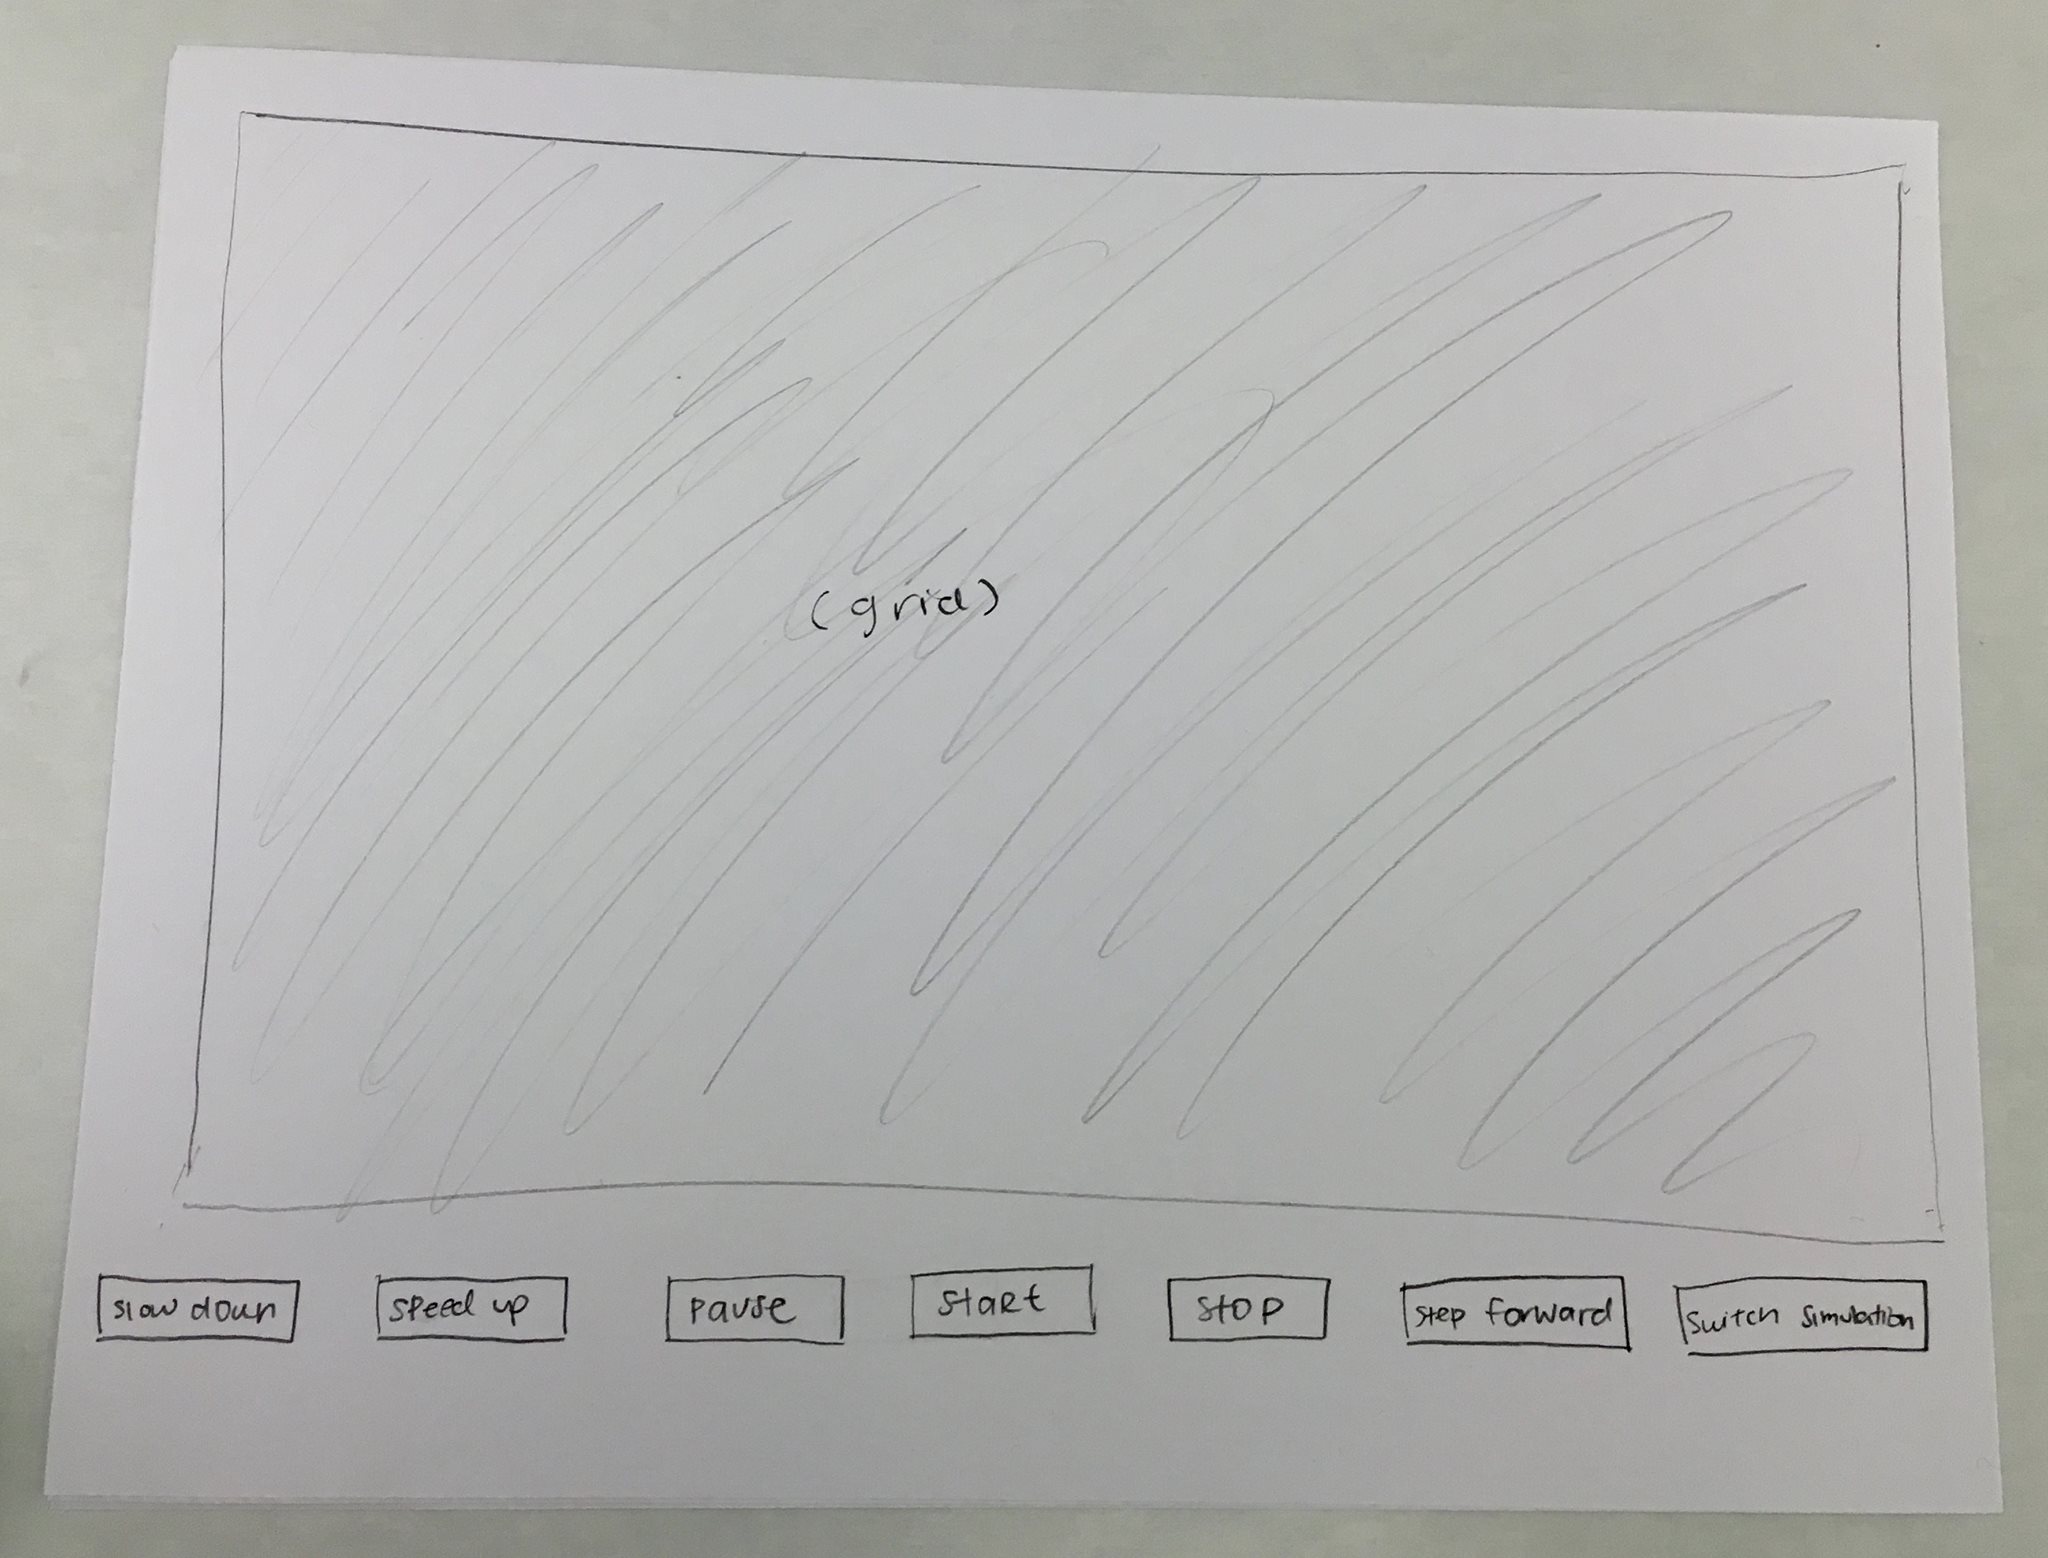 (grid)
slow down
speed up
pause
start
stop
step forward
switch simulation